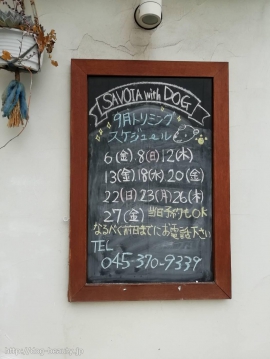 SAVOIA with DOG
9月トリミング
スケジュール
6(金) 8(日) 12(木)
13(金) 18(水) 20(金)
22(日) 23(月) 26(木)
27(金) 当日予約もOK
なるべく前日までにお電話下さい
TEL
045-370-9339